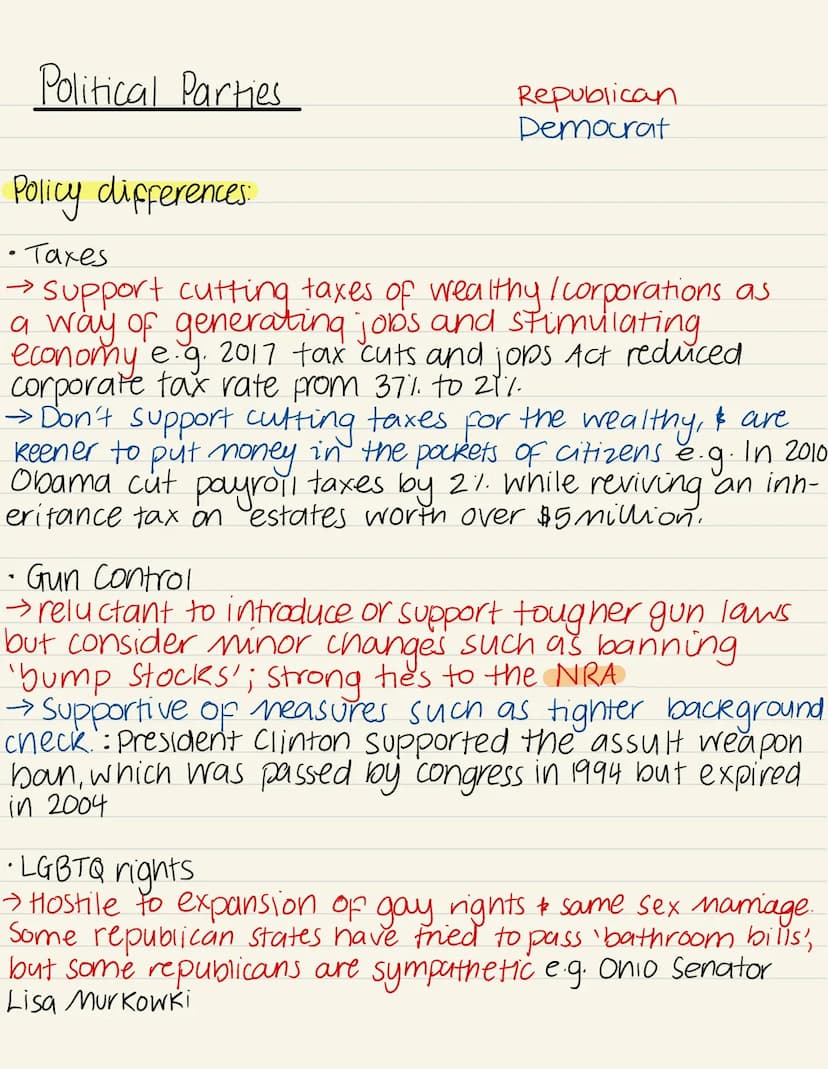 Political Parties
Republican
Democrat
Policy differences:
· Taxes
→ Support cutting taxes of wealthy/corporations as
a way of generating jobs and stimulating
economy e.g. 2017 tax cuts and jobs Act reduced
corporate tax rate from 37% to 21%.
→ Don't support cutting taxes for the wealthy, & are
keener to put money in the pockets of citizens e.g. In 2010
Obama cut payroll taxes by 2% while reviving an inh-
eritance tax on estates worth over $5 million.
· Gun Control
→ reluctant to introduce or support tougher gun laws
but consider minor changes such as banning
'bump stocks'; strong ties to the NRA
→ Supportive of measures such as tighter background
check. : President Clinton supported the assult weapon
ban, which was passed by congress in 1994 but expired
in 2004
· LGBTQ rights
→ Hostile to expansion of gay rights & same sex marriage.
Some republican states have tried to pass 'bathroom bills',
but some republicans are sympathetic e.g. Ohio Senator
Lisa Murkowki